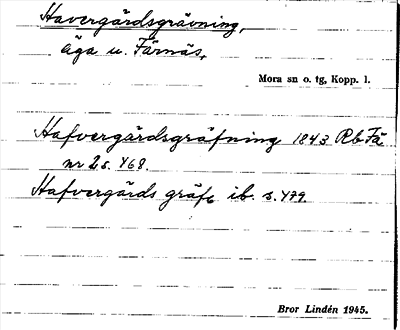 Havergärdsgrävning,
äga u. Färnäs,
Mora sn o. tg, Kopp. l.
Hafvergärdsgräfning 1843 Rb Fä
nr 2 s. 468.
Hafvergärds gräfn ib. s. 479
Bror Lindén 1945.